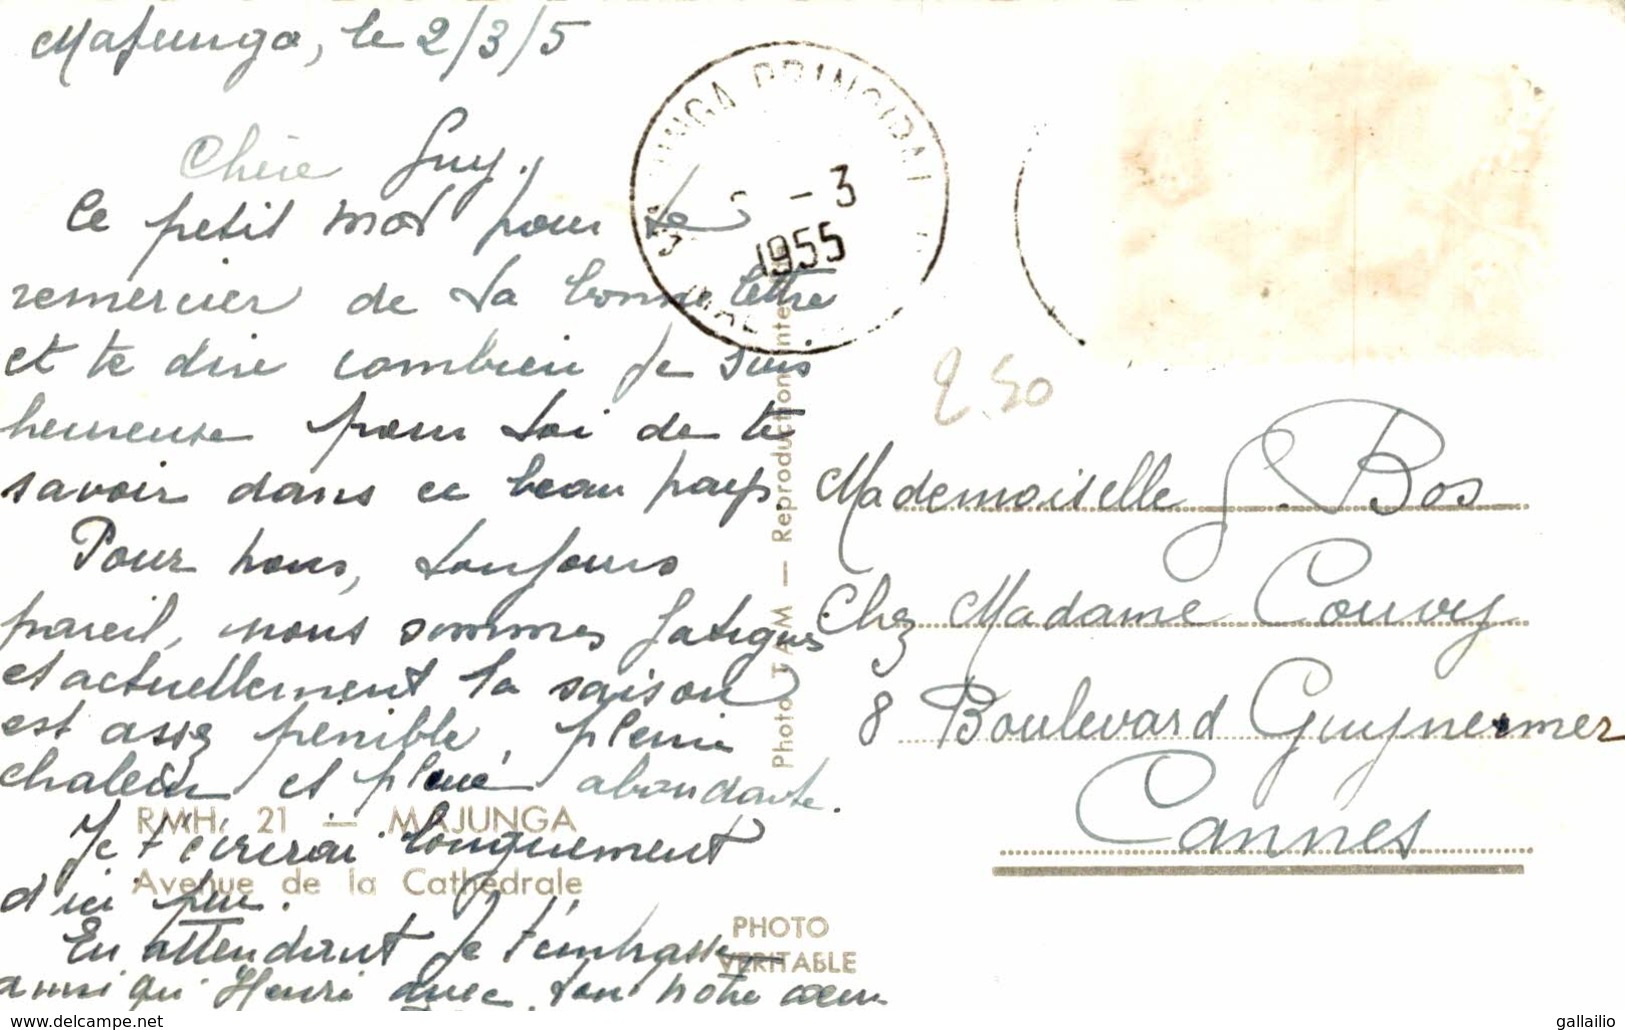 Majunga, le 2/3/5
Chère Guy,
Ce petit mot pour te
remercier de ta bonne lettre
et te dire combien je suis
heureuse pour toi de te
savoir dans ce beau pays
Pour nous, toujours
pareil, nous sommes fatigués
et actuellement la saison
est assez pénible, pleine
chaleur et pluie abondante.
Je t'écrirai longuement
d'ici peu.
En attendant je t'embrasse
ainsi qu' Henri avec tou notre cœur
RMH. 21 — MAJUNGA
Avenue de la Cathédrale
PHOTO
VERITABLE
Photo T.A.M — Reproduction inte
MAJUNGA PRINCIPAL
- 3
1955
2.50
Mademoiselle G. Bos
Chez Madame Couvey
8 Boulevard Guynemer
Cannes
www.delcampe.net
gallailio